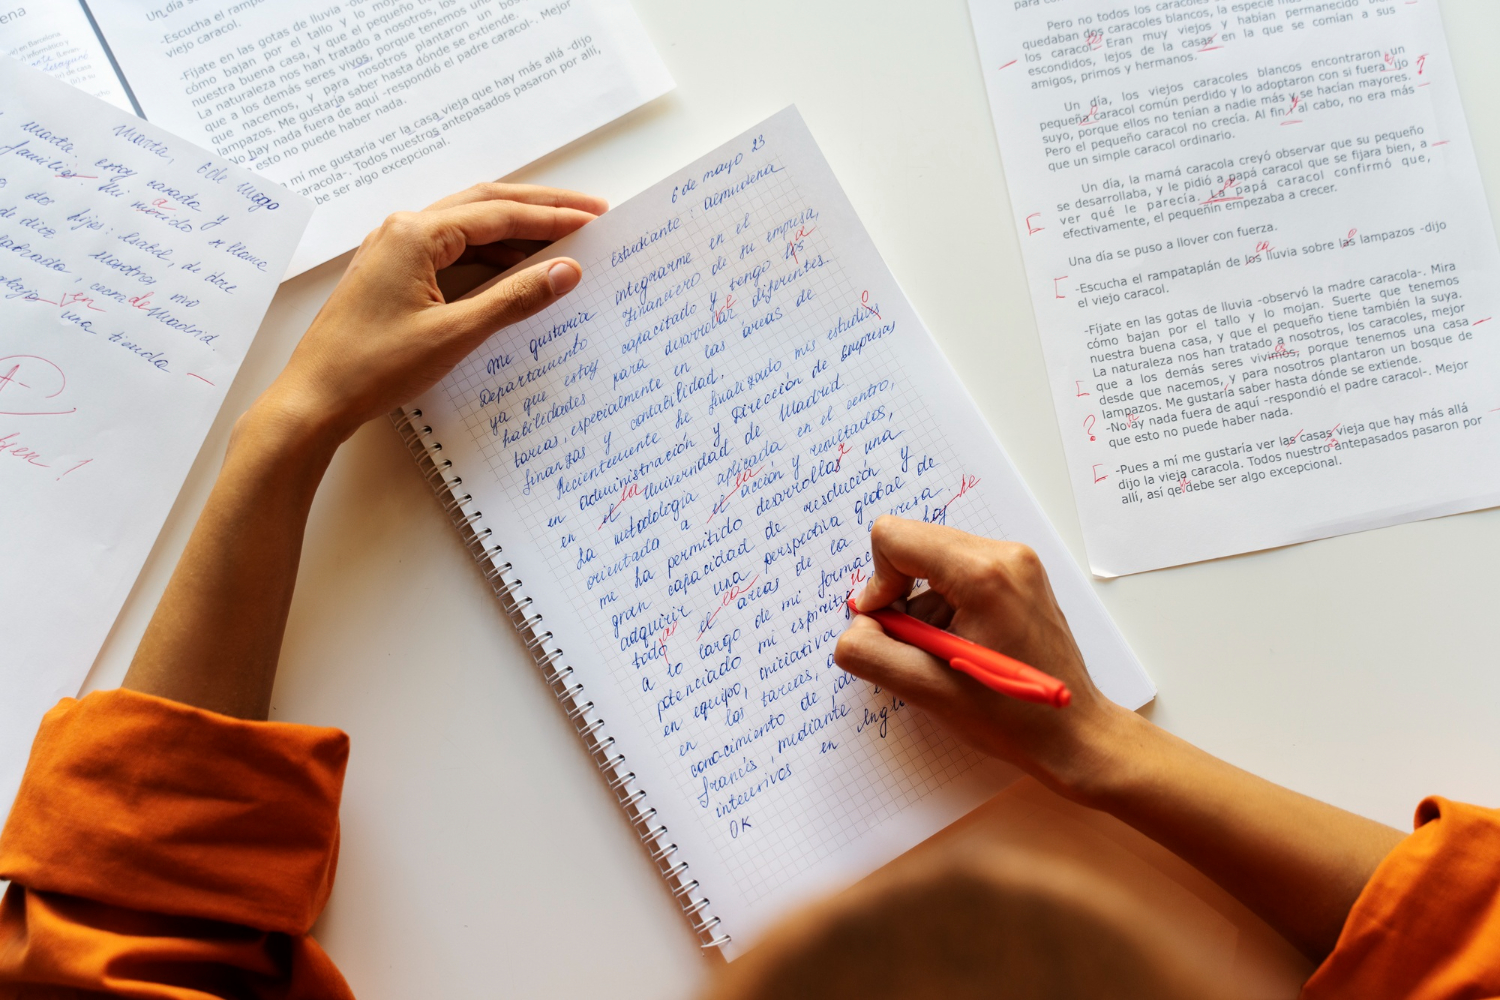 6 de mayo 23
Estudiante: Almudena
Me gustaría integrarme en el
Departamento Financiero de su empresa,
ya que estoy capacitado y tengo las
habilidades para desarrollar diferentes
tareas, especialmente en las áreas de
finanzas y contabilidad.
Recientemente he finalizado mis estudios
en administración y Dirección de Empresas
en el la Universidad de Madrid.
La metodología aplicada en el centro,
orientado a el la acción y resultados,
me ha permitido desarrollar una
gran capacidad de resolución y
adquirir una perspectiva global de
todo el areas de la empresa.
a lo largo de mi formac
potenciado mi espíritu
en equipo, iniciativa
en las tareas,
conocimiento de
francés, mediante
intensivos en
OK
Un día se
-Escucha el rampa
viejo caracol.
-Fíjate en las gotas de lluvia
cómo bajan por el tallo y lo mojan.
nuestra buena casa, y que el pequeño
La naturaleza nos han tratado a nosotros, los
que a los demás seres vivos, porque tenemos una
que nacemos, y para nosotros plantaron un bos
lampazos. Me gustaría saber hasta dónde se extiende.
No hay nada fuera de aquí -respondió el padre caracol-. Mejor
esto no puede haber nada.
a mí me gustaría ver la casa vieja que hay más allá -dijo
caracola-. Todos nuestros antepasados pasaron por allí,
be ser algo excepcional.
Marta, 6 de Mayo
Marta, estoy casada y
familia. Mi marido se llama
dos hijos: Isabel, de doce
de dice
trabajo en
cerca de Madrid.
una tienda
para co
Pero no todos los caracoles
quedaban dos caracoles blancos, la especie más
los caracol. Eran muy viejos y habían permanecido
escondidos, lejos de la casas en la que se comían a sus
amigos, primos y hermanos.
Un día, los viejos caracoles blancos encontraron un
pequeña caracol común perdido y lo adoptaron con si fuera ijo
suyo, porque ellos no tenían a nadie más y se hacían mayores.
Pero el pequeño caracol no crecía. Al fin i al cabo, no era más
que un simple caracol ordinario.
Un día, la mamá caracola creyó observar que su pequeño
se desarrollaba, y le pidió a papá caracol que se fijara bien, a
ver qué le parecía. La papá caracol confirmó que,
efectivamente, el pequeñín empezaba a crecer.
Una día se puso a llover con fuerza.
-Escucha el rampataplán de los lluvia sobre las lampazos -dijo
el viejo caracol.
-Fíjate en las gotas de lluvia -observó la madre caracola-. Mira
cómo bajan por el tallo y lo mojan. Suerte que tenemos
nuestra buena casa, y que el pequeño tiene también la suya.
La naturaleza nos han tratado a nosotros, los caracoles, mejor
que a los demás seres vivimos, porque tenemos una casa
desde que nacemos, y para nosotros plantaron un bosque de
lampazos. Me gustaría saber hasta dónde se extiende.
-No ay nada fuera de aquí -respondió el padre caracol-. Mejor
que esto no puede haber nada.
-Pues a mí me gustaría ver las casas vieja que hay más allá
dijo la vieja caracola. Todos nuestro antepasados pasaron por
allí, así qe debe ser algo excepcional.